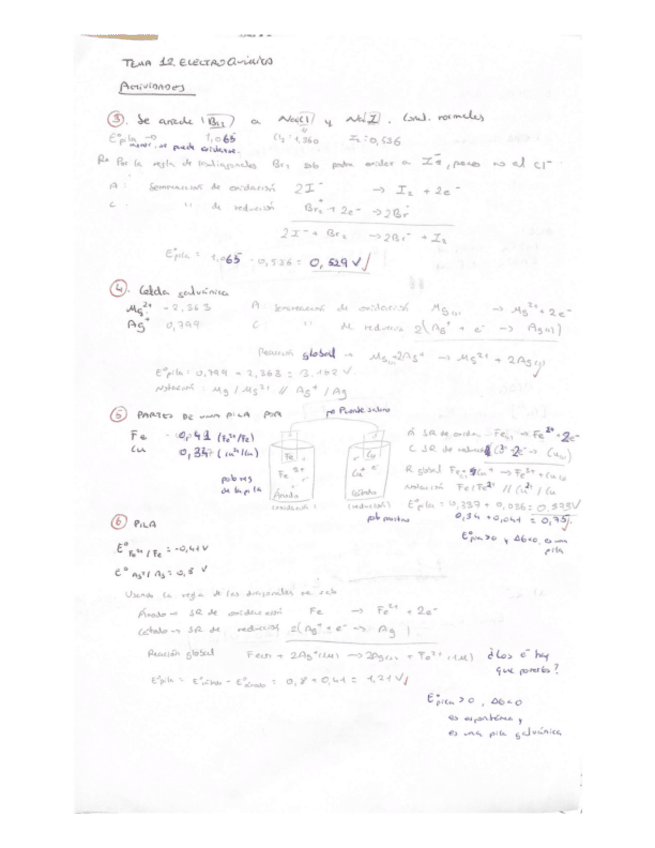 TEMA 12. ELECTROQUÍMICA
ACTIVIDADES
③. Se añade (Br2) a NaCl y NaI. Cond. normales
E°pila → 1,065 Cl2 = 1,360 I2 = 0,536
menor, se puede oxidarse.
R= Por la regla de las diagonales Br2 solo podrá oxidar a I⁻, pero no al Cl⁻
A: Semirreacción de oxidación 2I⁻ → I2 + 2e⁻
C: " de reducción Br2 + 2e⁻ → 2Br⁻
2I⁻ + Br2 → 2Br⁻ + I2
E°pila = 1,065 - 0,536 = 0,529 V
④. Celda galvánica
Mg²⁺ -2,363 A: Semirreacción de oxidación Mg(s) → Mg²⁺ + 2e⁻
Ag⁺ 0,799 C: " de reducción 2(Ag⁺ + e⁻ → Ag(s))
Reacción global → Mg(s) + 2Ag⁺ → Mg²⁺ + 2Ag(s)
E°pila = 0,799 + 2,363 = 3,162 V.
Notación: Mg / Mg²⁺ // Ag⁺ / Ag
⑤ PARTES DE UNA PILA
Puente salino
Fe -0,41 (Fe²⁺/Fe)
Cu 0,337 (Cu²⁺/Cu)
polo
de la pila
Fe
Ánodo
(oxidación)
Cu
Cátodo
(reducción)
polo positivo
A SR de oxidac. Fe(s) → Fe²⁺ + 2e⁻
C SR de reducc.
R global
Notación Fe/Fe²⁺ // Cu²⁺ / Cu
0,34 + 0,041 = 0,75
E°pila>0 y ΔG<0, es una
pila
⑥ PILA
E° Fe²⁺/Fe = -0,41V
E° Ag⁺/Ag = 0,8 V
Usando la regla de las diagonales se sab
Ánodo → SR de oxidación Fe → Fe²⁺ + 2e⁻
Cátodo → SR de reducción 2(Ag⁺ + e⁻ → Ag)
Reacción global Fe(s) + 2Ag⁺(1M) → 2Ag(s) + Fe²⁺(1M)
¿Los e⁻ hay
que ponerlos?
E°pila = E°cátodo - E°ánodo = 0,8 + 0,41 = 1,21 V
E°pila > 0, ΔG<0
es espontánea y
es una pila galvánica